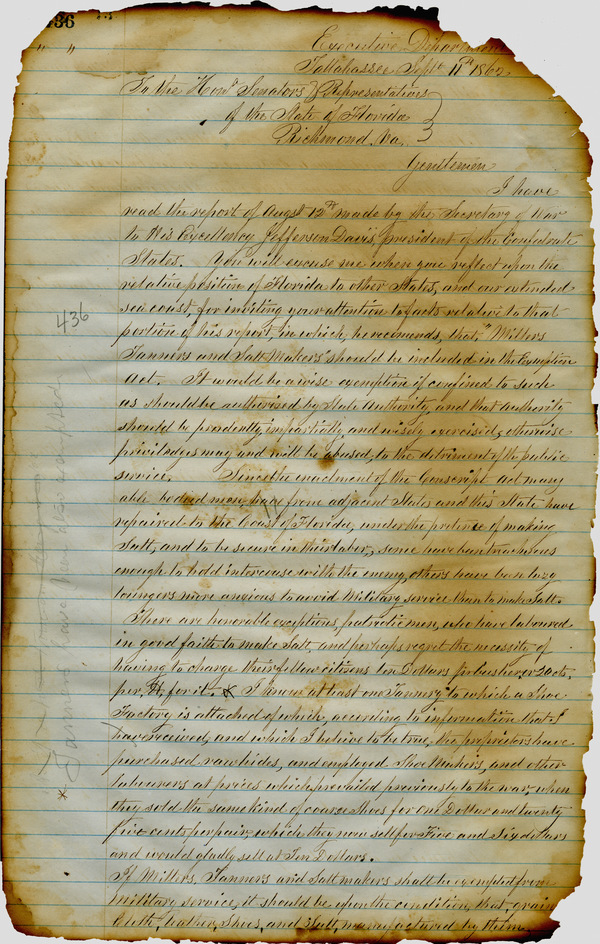 436
" "
Executive Department
Tallahassee Sept 11th 1862
To the Honl Senators & Representatives
of the State of Florida
Richmond, Va.
Gentlemen
I have
read the report of Augst 12th made by the Secretary of War
to His Excellency Jefferson Davis, president of the Confederate
States. You will excuse me when you reflect upon the
relative position of Florida to other States, and our extended
sea coast, for inviting your attention to facts relative to that
portion of his report, in which, he recomends, that, "Millers
Tanners and Salt Makers" should be included in the Exemption
Act. It would be a wise exemption if confined to such
as should be authorised by State Authority, and that authority
should be prudently, impartially, and wisely exercised, otherwise
priviledges may and will be abused, to the detriment of the public
service. Since the enactment of the Conscript act many
able bodied men, have from adjacent States and this State have
repaired to the Coast of Florida, under the pretence of making
Salt, and to be secure in their labor, some have been treacherous
enough to hold intercourse with the enemy, others have been lazy
loungers more anxious to avoid Military service than to make Salt.
There are honorable exceptions, patriotic men, who have laboured
in good faith to make Salt, and perhaps regret the necessity of
having to charge their fellow citizens ten Dollars pr bushel or 20 cts.
per. lb for it. * I know at least one Tannery to which a Shoe
Factory is attached of which, according to information that I
have received, and which I believe to be true, the proprietors have
purchased raw hides, and employed Shoe Makers, and other
labourers at prices which prevailed previously to the war, when
they sold the same kind of coarse Shoes for one Dollar and twenty
five cents per pair which they now sell for Five and Six dollars
and would gladly sell at Ten Dollars.
If Millers, Tanners and Salt makers shall be exempted from
Military service, it should be upon the condition, that, grain
Cloth, leather, Shoes, and Salt, manufactured by them
436
* Tanners have been exempted